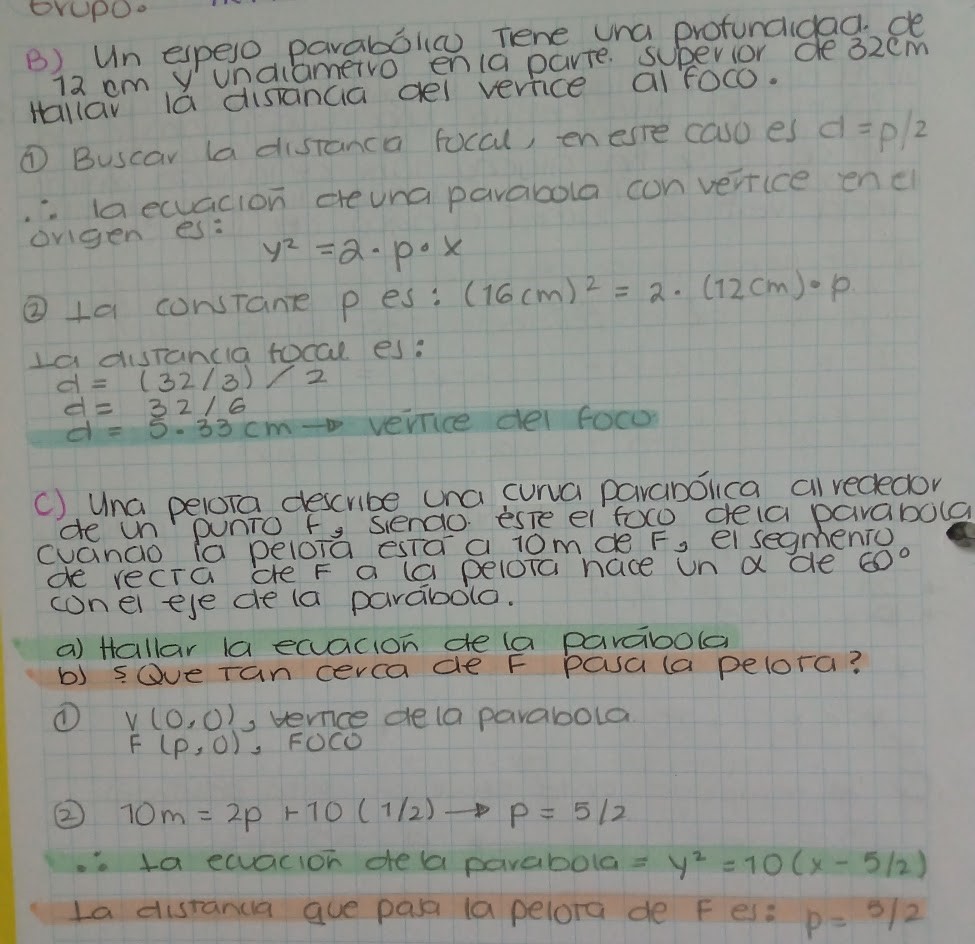 Grupo.
B) Un espejo parabólico Tiene una profundidad de
12 cm y un diametro en la parte superior de 32cm
Hallar la distancia del vertice al foco.
① Buscar la distanca focal, en este caso es d = p/2
∴ la ecuación de una parabola con vertice en el
origen es:
y² = 2 · p · x
② La constante p es: (16cm)² = 2 · (12cm) · p
La distancia focal es:
d = (32/3) / 2
d = 32/6
d = 5.33 cm → vertice del foco
C) Una pelota describe una curva parabólica alrededor
de un punto F, siendo éste el foco de la parabola
cuando la pelota esta a 10m de F, el segmento
de recta de F a la pelota hace un α de 60°
con el eje de la parábola.
a) Hallar la ecuación de la parábola
b) ¿Que tan cerca de F pasa la pelota?
① V(0,0), vertice de la parabola
F (p,0), FOCO
② 10m = 2p + 10 (1/2) → p = 5/2
∴ La ecuación de la parabola = y² = 10(x - 5/2)
La distancia que pasa la pelota de F es: p = 5/2